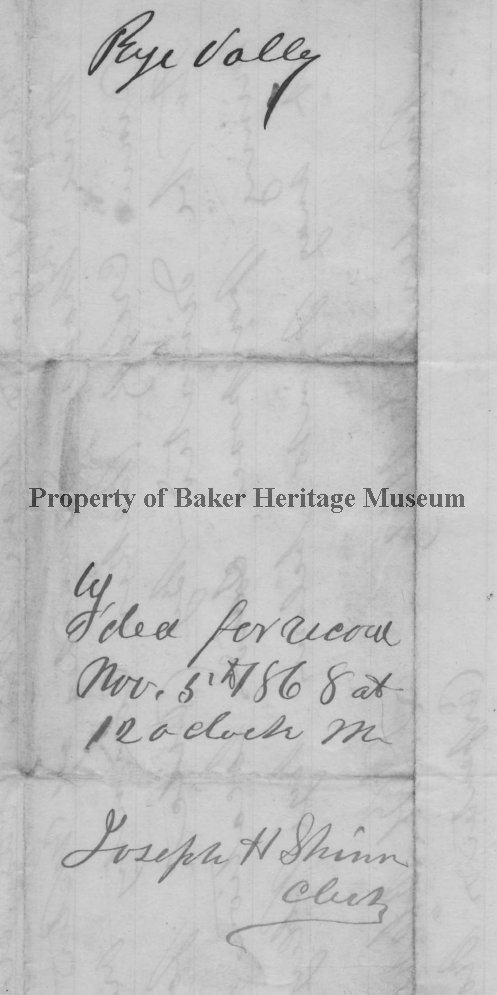 Rye Vally
Property of Baker Heritage Museum
Filed for record
Nov. 5th 1868 at
12 oclock M
Joseph H Shinn
Clerk